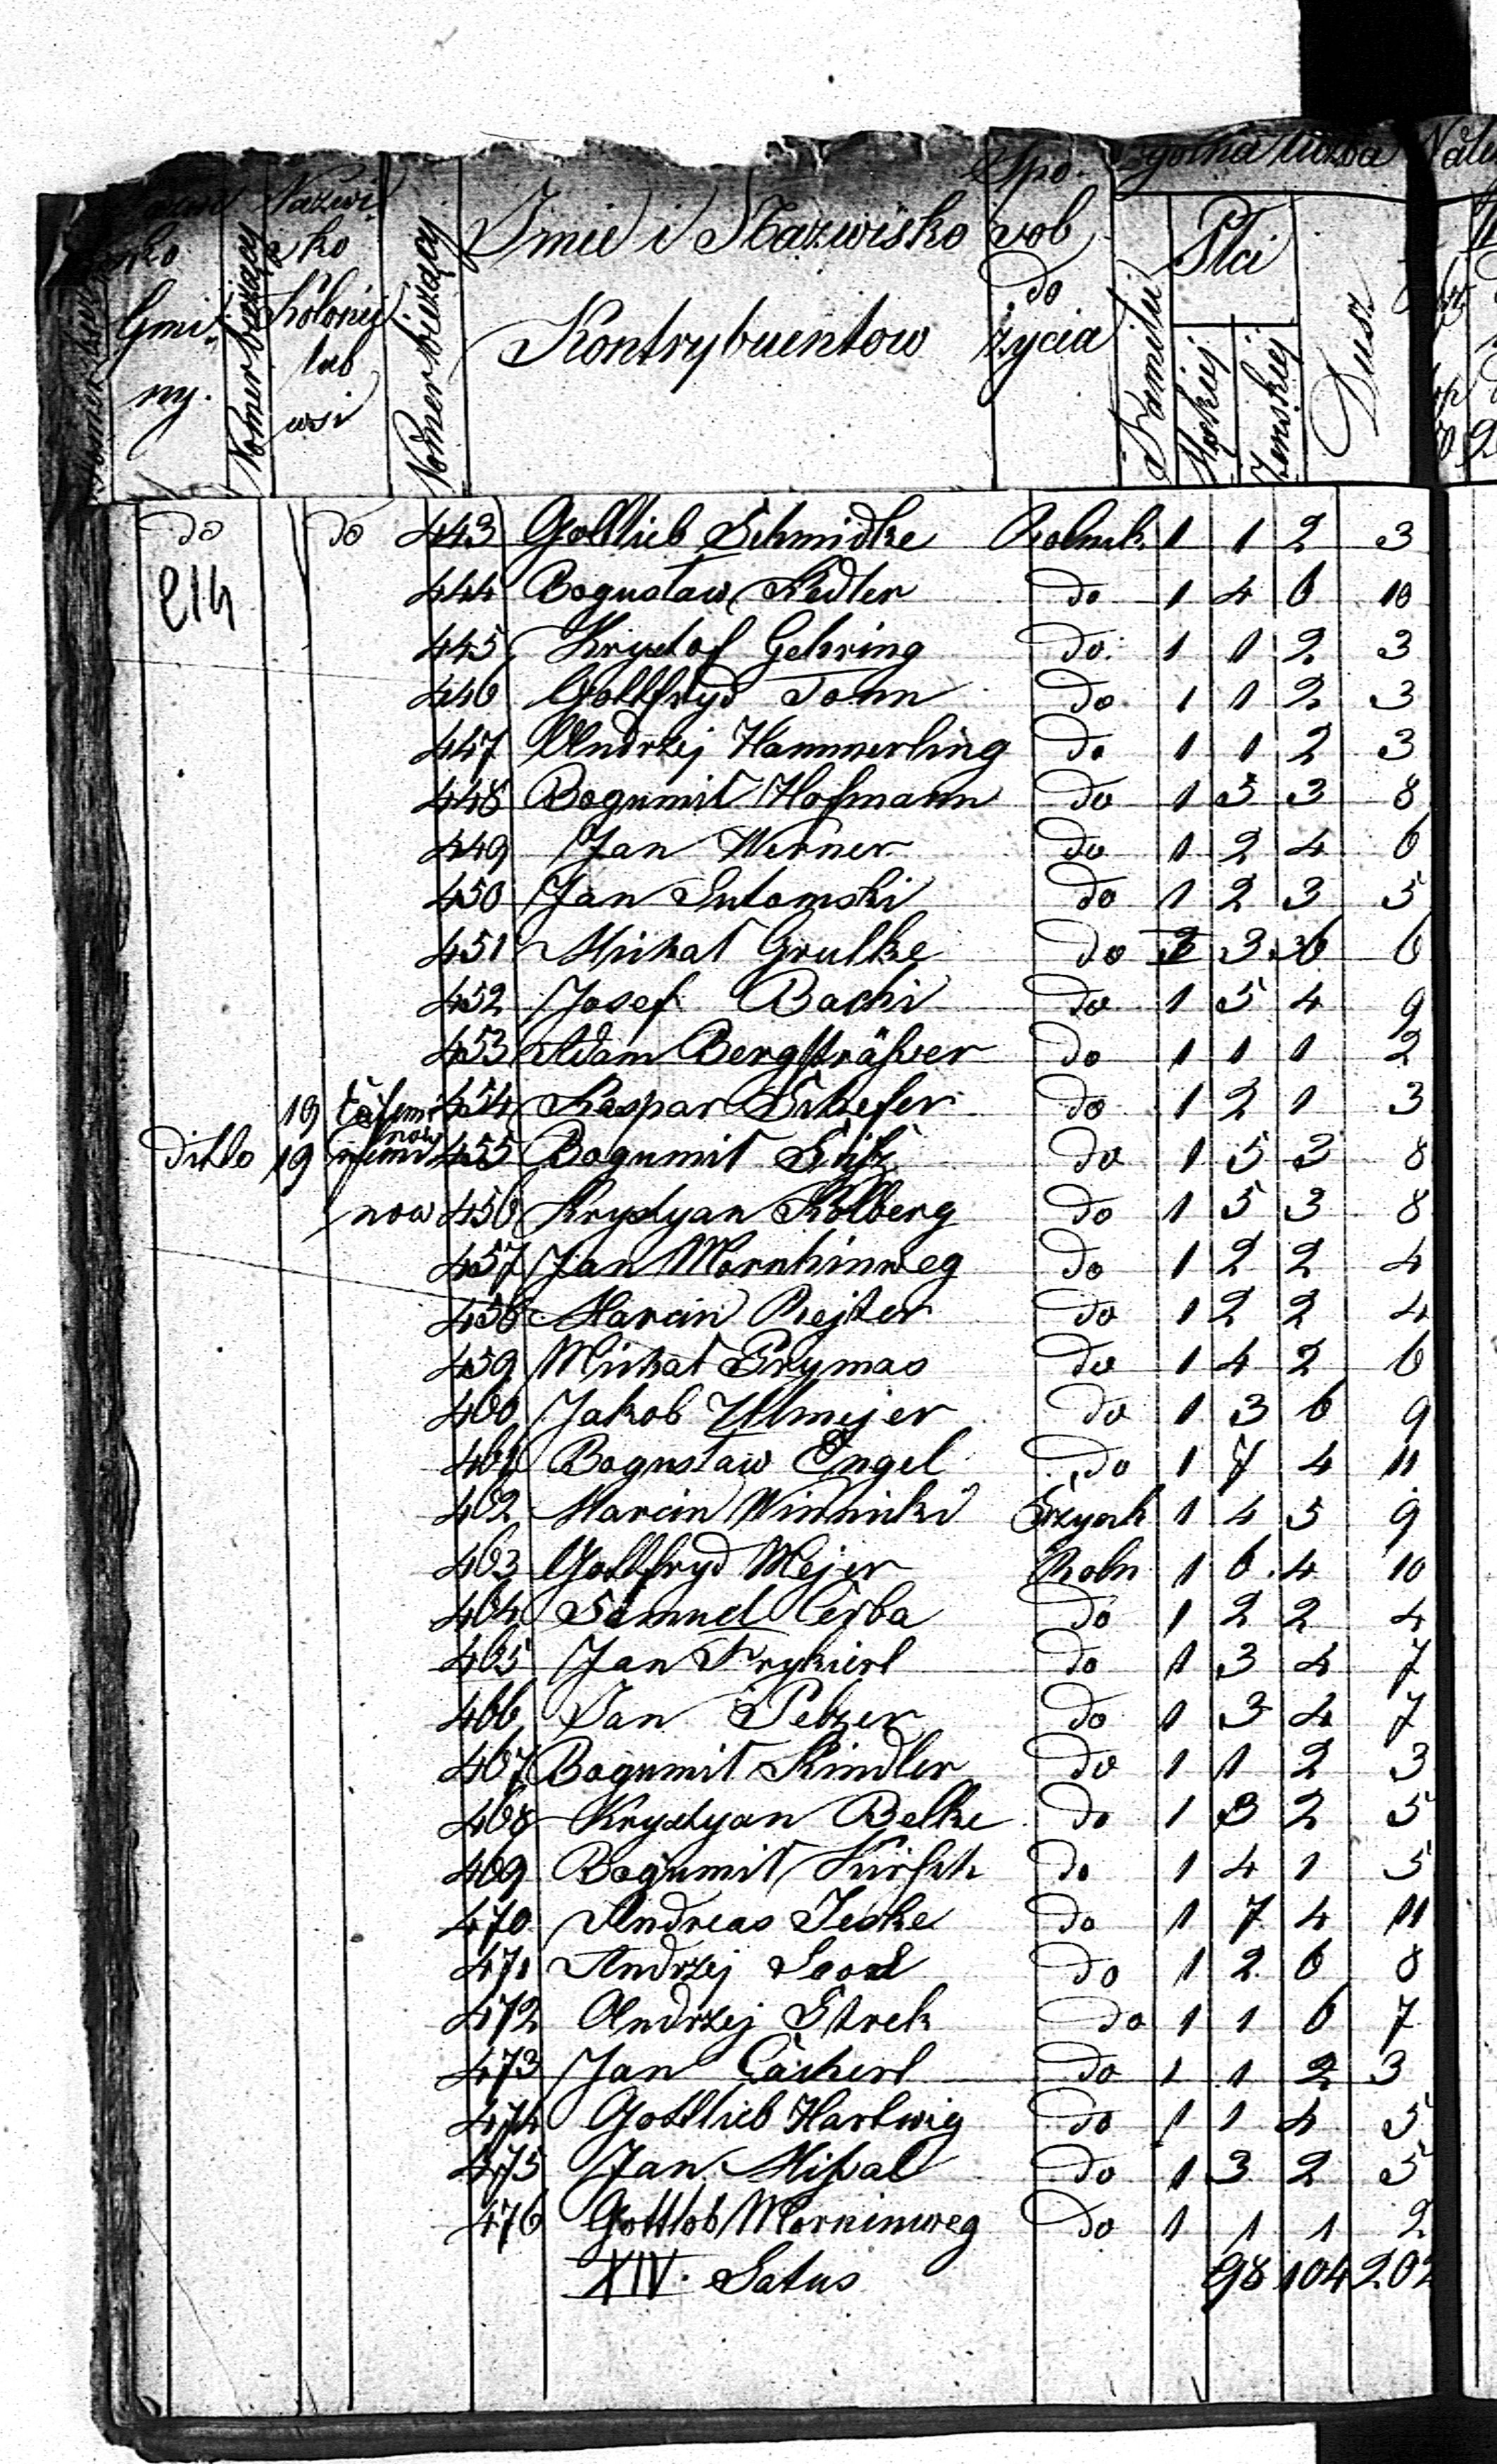 Nazwi
sko
Kolonii
lub
wsi
Gmi
ny.
Nomer bieżący
Nomer bieżący
Imie i Nazwisko
Kontrybuentow
Spo
sob
do
życia
liczba
Familii
Płci
Męskiej
Żenskiej
Dusz
do do 443 Gottlieb Schmidke Rolnik 1 1 2 3
444 Bogusław Kedler do 1 4 6 10
445 Krystof Gehring do 1 1 2 3
446 Gottfryd Tonn do 1 1 2 3
447 Andrzej Hammerling do 1 1 2 3
448 Bogumił Hofmann do 1 5 3 8
449 Jan Werner do 1 2 4 6
450 Jan Sutomski do 1 2 3 5
451 Michał Grulke do 3 6
452 Josef Bachi do 1 5 4 9
453 Adam Bergsträßer do 1 1 1 2
19 454 Kaspar Schefer do 1 2 1 3
ditto 19 455 Bogumił do 1 5 3 8
now 456 Krystyan Kolberg do 1 5 3 8
457 Jan Mornhinweg do 1 2 2 4
458 Marcin Rejter do 1 2 2 4
459 Michał Prymas do 1 4 2 6
460 Jakob Ulmejer do 1 3 6 9
461 Bogusław Engel do 1 7 4 11
462 Marcin Winnicki 1 4 5 9
463 Gottfryd Mejer Roln 1 6 4 10
464 Samuel Cerba do 1 2 2 4
465 Jan Frykierl do 1 3 4 7
466 Jan Pelzer do 1 3 4 7
467 Bogumił Kindler do 1 1 2 3
468 Krystyan Belke do 1 3 2 5
469 Bogumił Kirsch do 1 4 1 5
470 Andreas Jeske do 1 7 4 11
471 Andrzej do 1 2 6 8
472 Andrzej Strek do 1 1 6 7
473 Jan Cächerl do 1 1 2 3
474 Gottlieb Hartwig do 1 1 4 5
475 Jan Mißal do 1 3 2 5
476 Gottlob Morninweg do 1 1 1 2
XIV. Latus 98 104 202